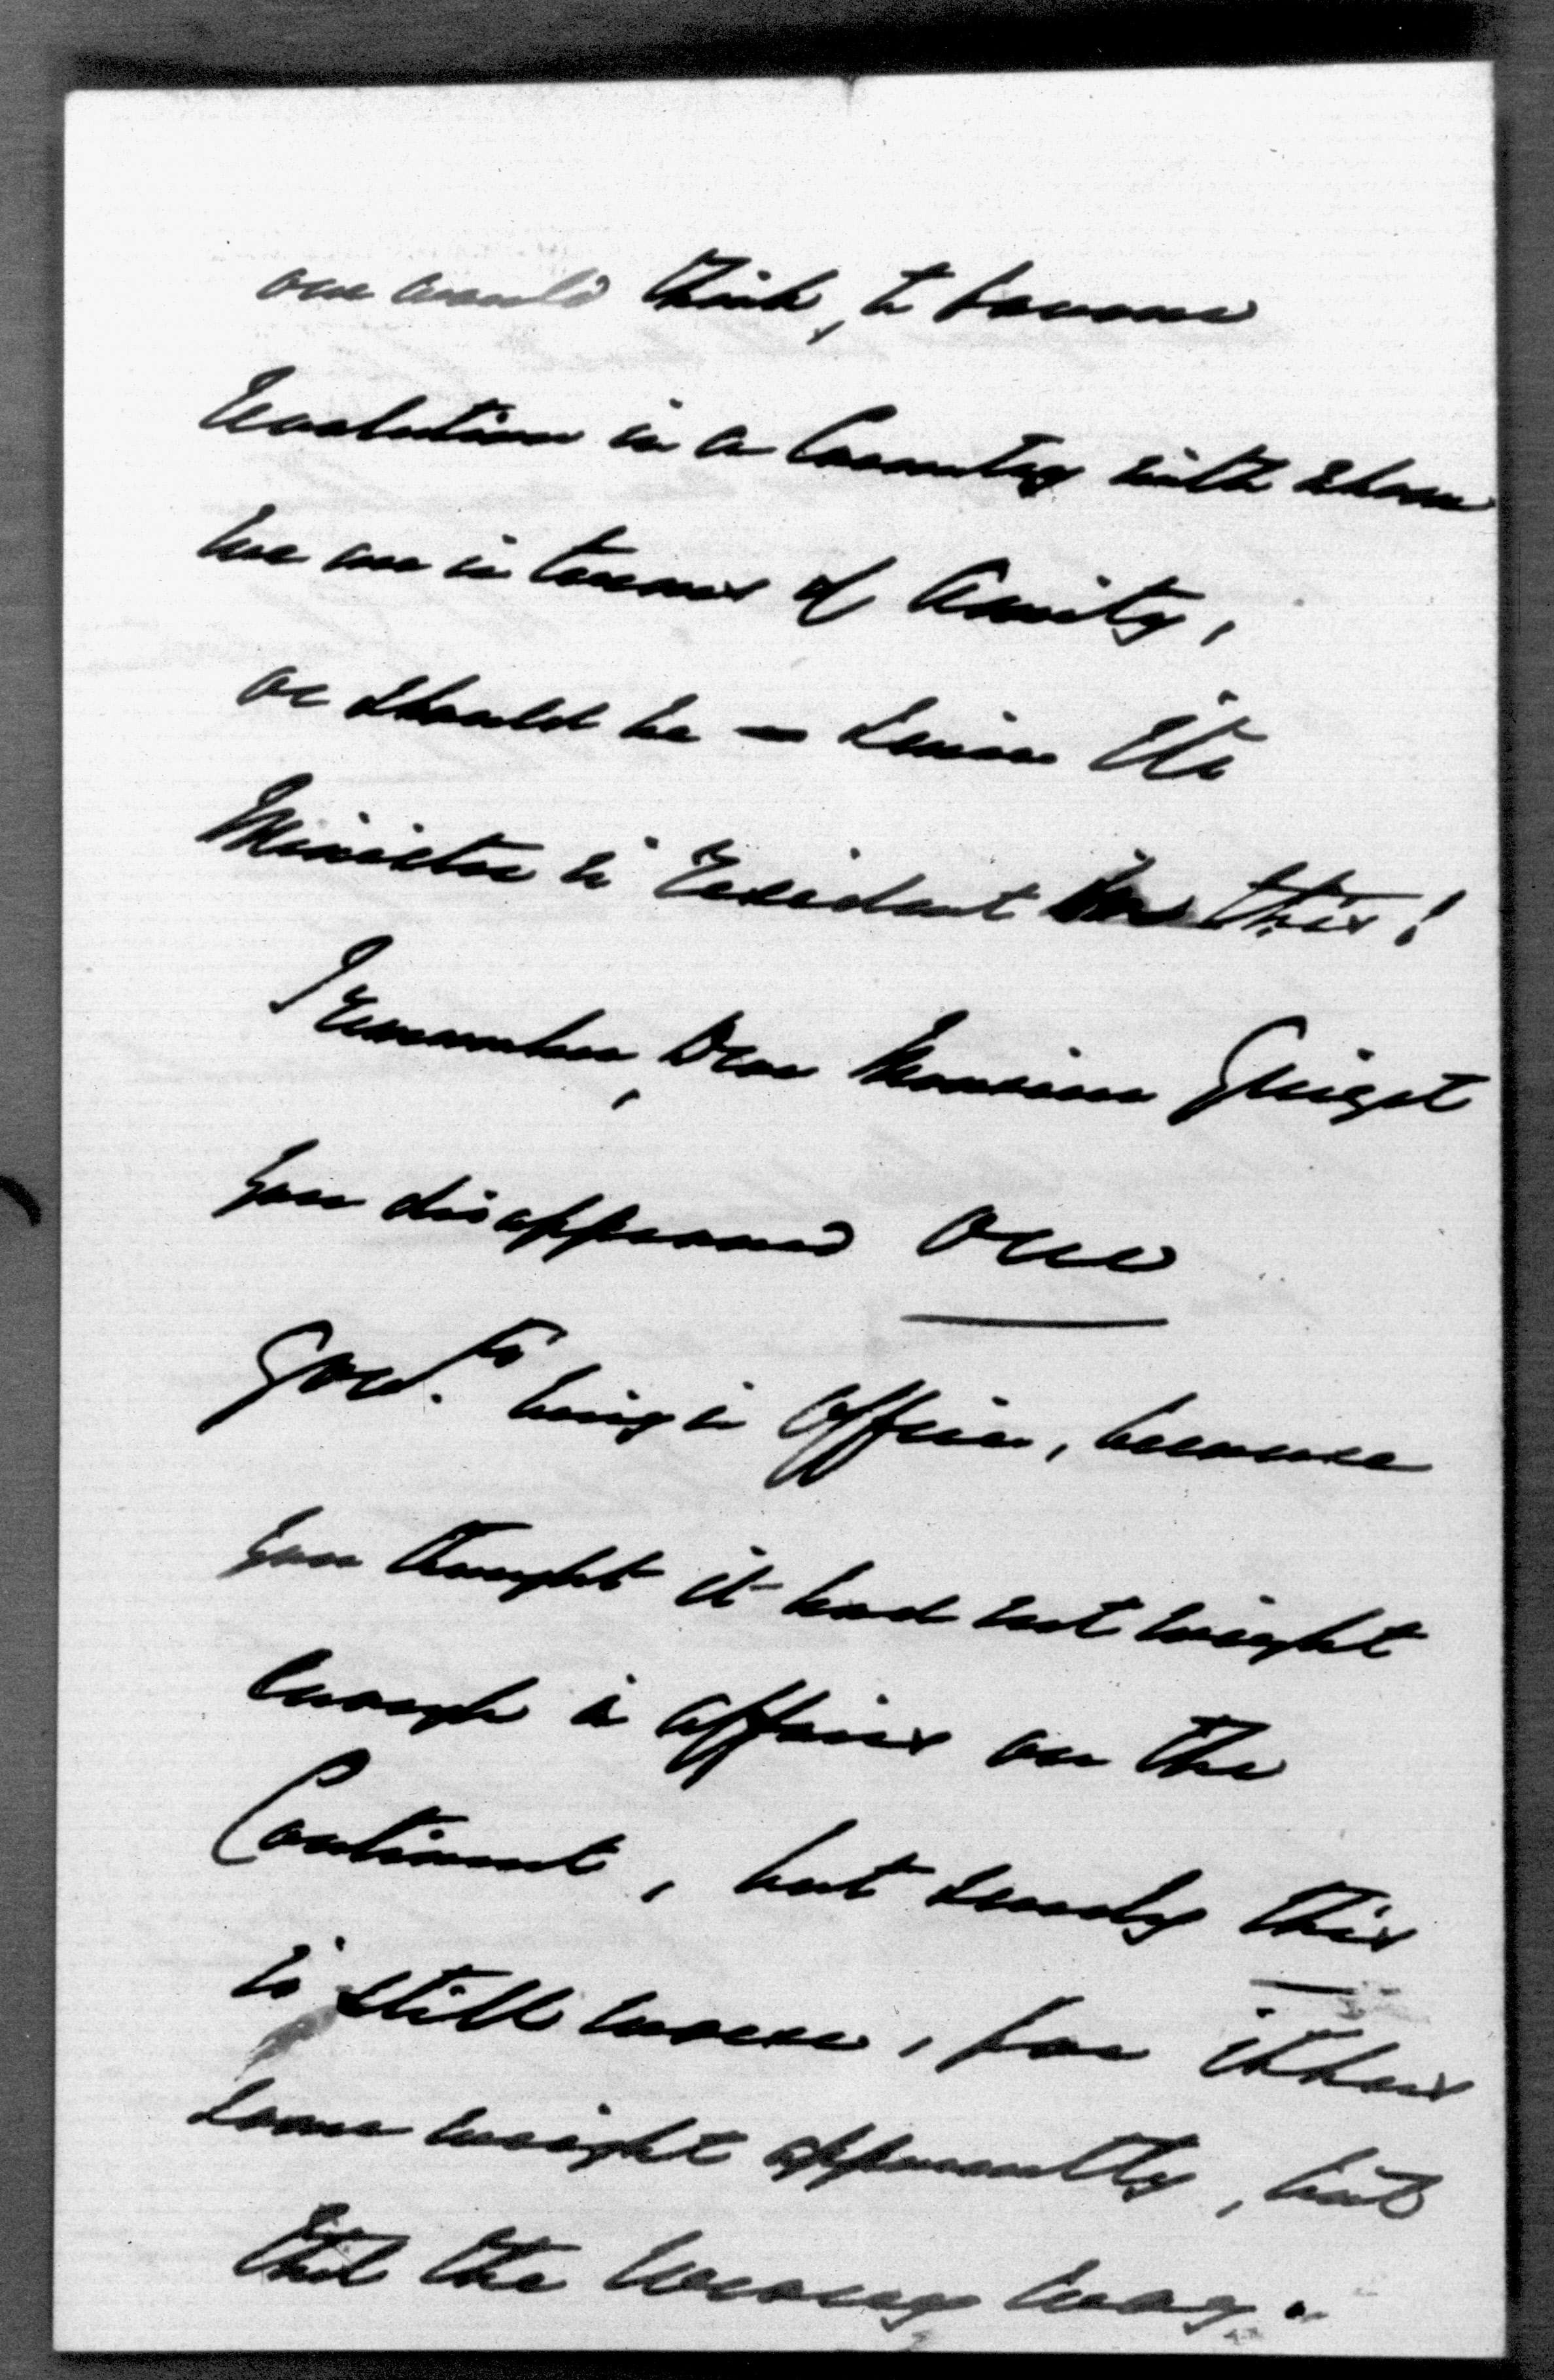 one would think, to favour
Revolution in a Country with whom
we are in terms of Amity,
or should be – since its
Minister is resident in this!
I remember, Dear Monsieur Guizot
you disapproved our
Gov.t's being in Office, because
you thought it had not weight
enough in affairs on the
Continent, but surely this
is still worse, for it has
some weight apparently, but
that the wrong way.